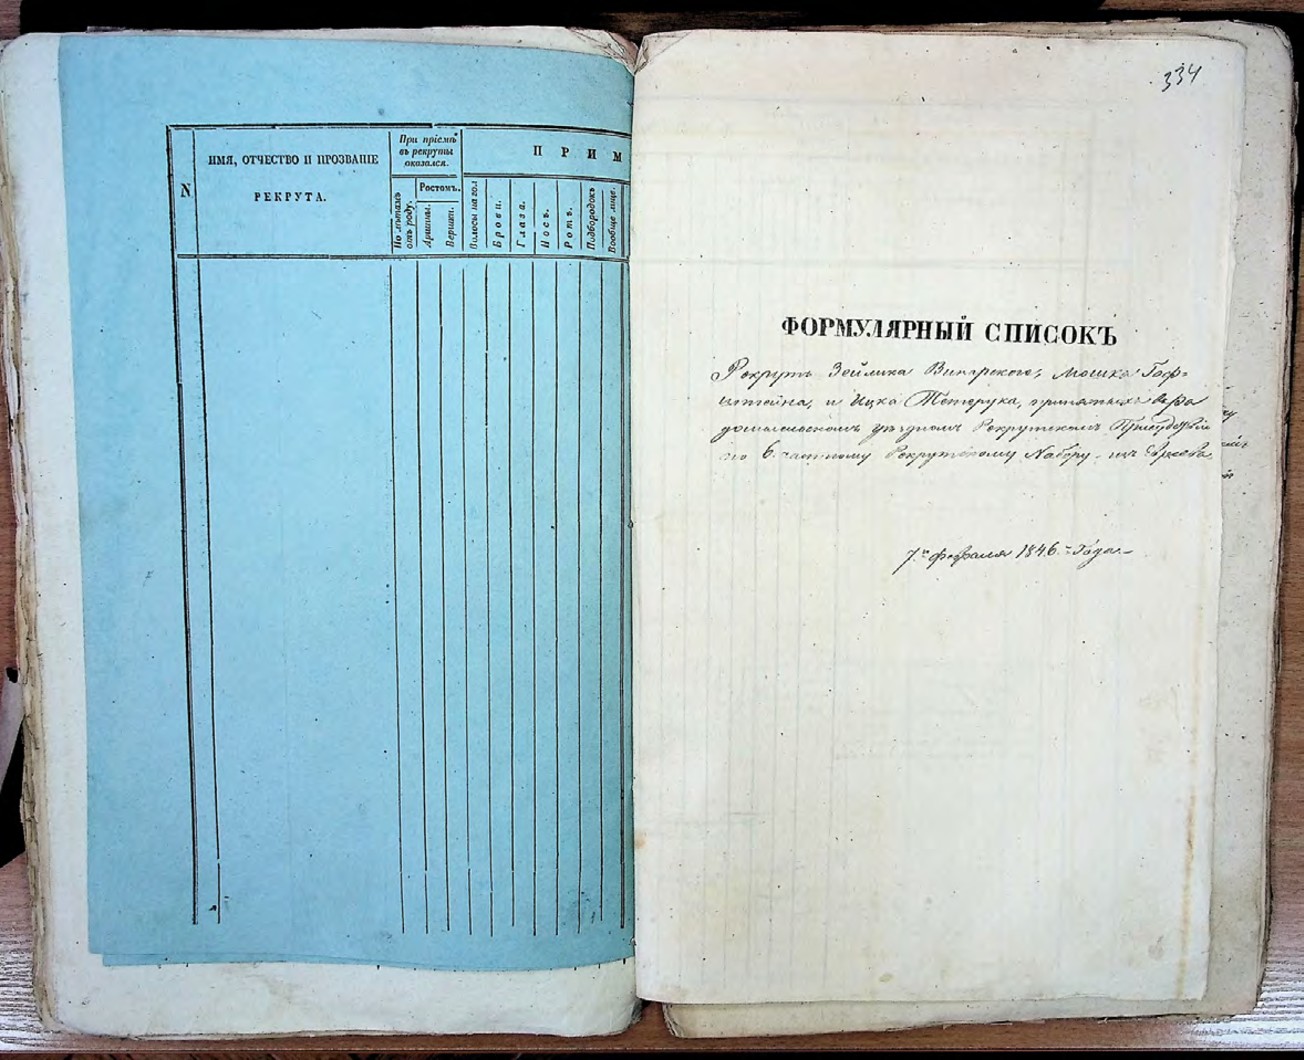 N
ИМЯ, ОТЧЕСТВО И ПРОЗВАНІЕ
РЕКРУТА.
При пріемѣ
въ рекруты
оказался.
По лѣтамъ
отъ роду.
Ростомъ.
Аршин.
Вершк.
П Р И М
Волосы на гол
Брови.
Глаза.
Носъ.
Ротъ.
Подбородокъ
Вообще лице.
334
ФОРМУЛЯРНЫЙ СПИСОКЪ
Рекрутъ Зейлика Винарского, Мошка Гоф=
штейна, и Ицка Тетерука, принятыхъ въ Ра
домысльскомъ уѣздномъ Рекрутскомъ Присудствіи
по 6. частному Рекрутскому Набору изъ Евреевъ
7го февраля 1846 Года